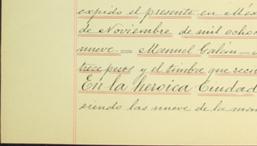 expido el presente en Méx
de Noviembre de mil ocho
nueve = Manuel Galin
trece pesos y el timbre que
En la heroica Ciudad
siendo las nueve de la ma